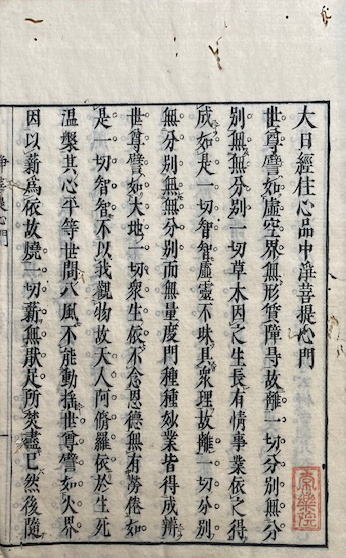 大日經住心品中淨菩提心門
世尊譬如虛空界無形質障㝵故離一切分別無分
別無無分別一切草木因之生長有情事業依之得
成如是一切智智虛靈不昧具衆理故離一切分別
無分別無無分別而無量度門種種妙業皆得成辨
世尊譬如大地一切衆生依不念恩德無有勞倦如
是一切智智不以我觀物故天人阿脩羅依於生死
溫槃其心平等世間八風不能動揺世尊譬如火界
因以薪爲依故燒一切薪無猒足所焚盡已然後隨
淨菩提心門